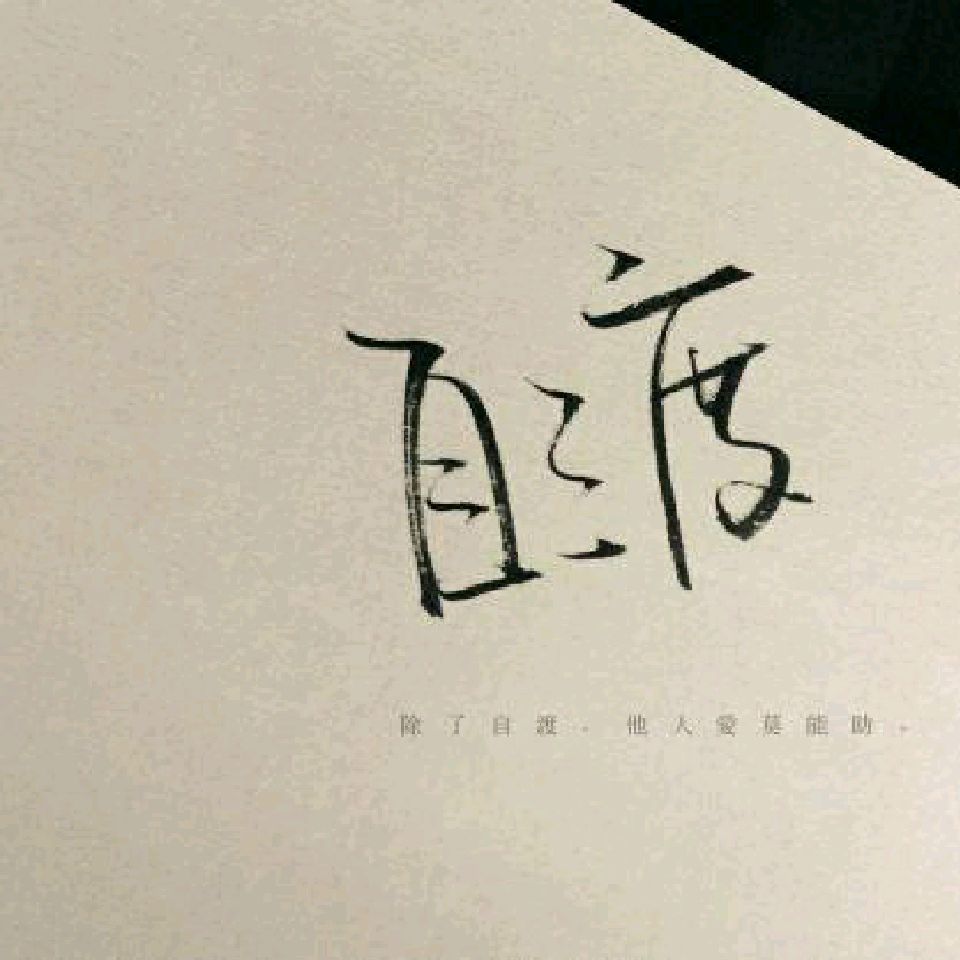 自渡
除了自渡。他人愛莫能助。